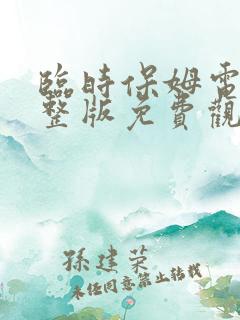 臨時保姆電
整版免費觀
孫建榮
未经同意禁止转载